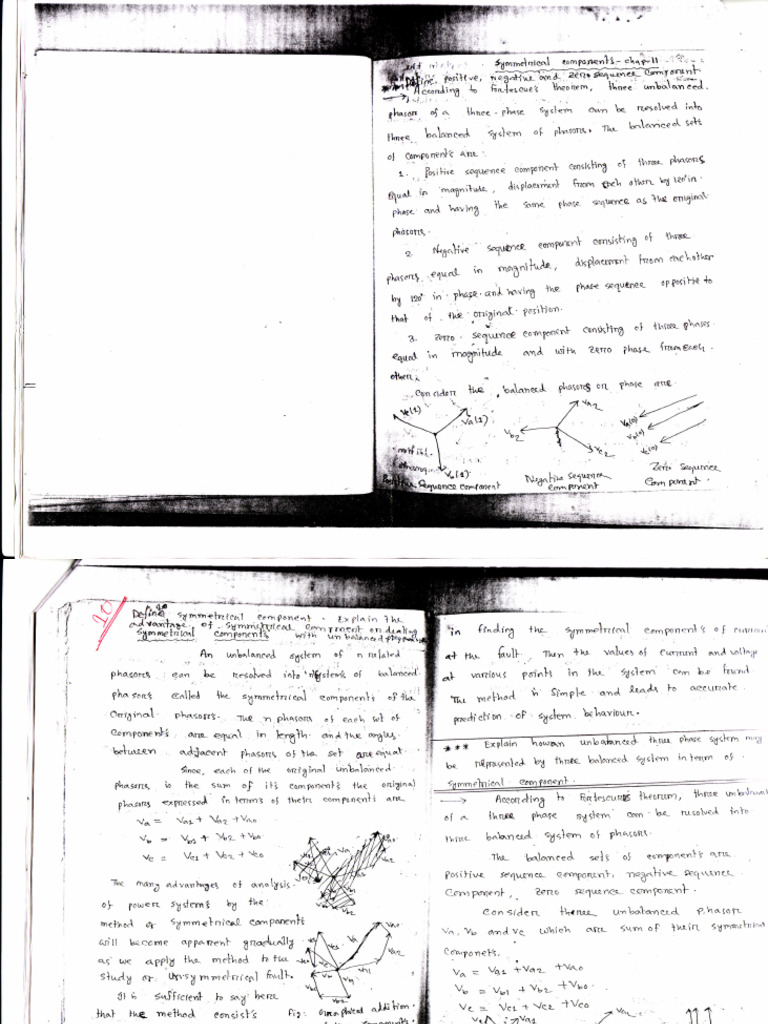 Symmetrical components - chap-11
*** Define, positive, negative and zero sequence component
→ According to Fortescue's theorem, three unbalanced
phasors of a three-phase system can be resolved into
three balanced system of phasors. The balanced sets
of components are:
1. Positive sequence component consisting of three phasors
equal in magnitude, displacement from each other by 120° in
phase and having the same phase sequence as the original
phasors.
2. Negative sequence component consisting of three
phasors equal in magnitude, displacement from each other
by 120° in phase and having the phase sequence opposite to
that of the original position.
3. Zero sequence component consisting of three phases
equal in magnitude and with zero phase from each
other.
Consider the balanced phasors or phase are
Vc(1) Va(1) Vb2 Va2 Vc2 Va(0) Vb(0) Vc(0)
Positive Sequence component
Negative sequence component
Zero Sequence Component
20
Define symmetrical component. Explain the
advantage of symmetrical component on dealing
symmetrical components with unbalanced
An unbalanced system of n related
phasors can be resolved into n systems of balanced
phasors called the symmetrical components of the
original phasors. The n phasors of each set of
components are equal in length and the angles
between adjacent phasors of the set are equal.
Since, each of the original unbalanced
phasors is the sum of its components the original
phasors expressed in terms of their components are
Va = Va1 + Va2 + Va0
Vb = Vb1 + Vb2 + Vb0
Vc = Vc1 + Vc2 + Vc0
The many advantages of analysis
of power systems by the
method of symmetrical components
will become apparent gradually
as we apply the method to the
study of unsymmetrical fault.
It is sufficient to say here
that the method consists
fig: addition
in finding the symmetrical component's of current
at the fault. Then the values of current and voltage
at various points in the system can be found
The method is simple and leads to accurate
prediction of system behaviour.
*** Explain how an unbalanced three phase system may
be represented by three balanced system in term of
symmetrical component.
→ According to Fortescue's theorum, three unbalanced
of a three phase system can be resolved into
three balanced system of phasors.
The balanced sets of components are
positive sequence component, negative sequence
component, zero sequence component.
Consider three unbalanced phasor
Va, Vb and Vc which are sum of their symmetrical
componets.
Va = Va1 + Va2 + Va0
Vb = Vb1 + Vb2 + Vb0
Vc = Vc1 + Vc2 + Vc0